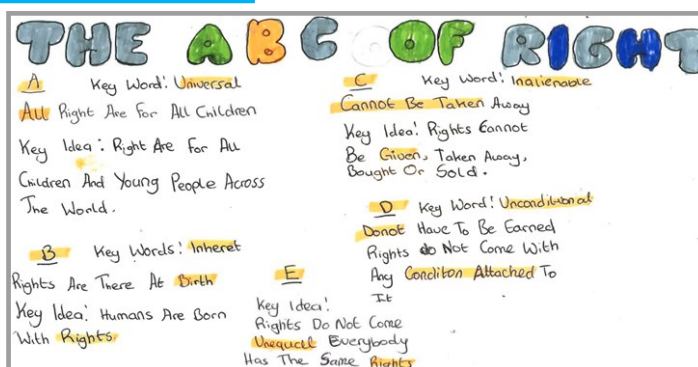 THE ABC OF RIGHT
A Key Word: Universal
All Right Are For All Children
Key Idea: Right Are For All
Children And Young People Across
The World.
B Key Words: Inheret
Rights Are There At Birth
Key Idea: Humans Are Born
With Rights.
C Key Word: Inalienable
Cannot Be Taken Away
Key Idea: Rights Cannot
Be Given, Taken Away,
Bought Or Sold.
D Key Word: Unconditional
Donot Have To Be Earned
Rights do Not Come With
Any Conditon Attached To
It
E
Key Idea:
Rights Do Not Come
Unequall Everybody
Has The Same Rights